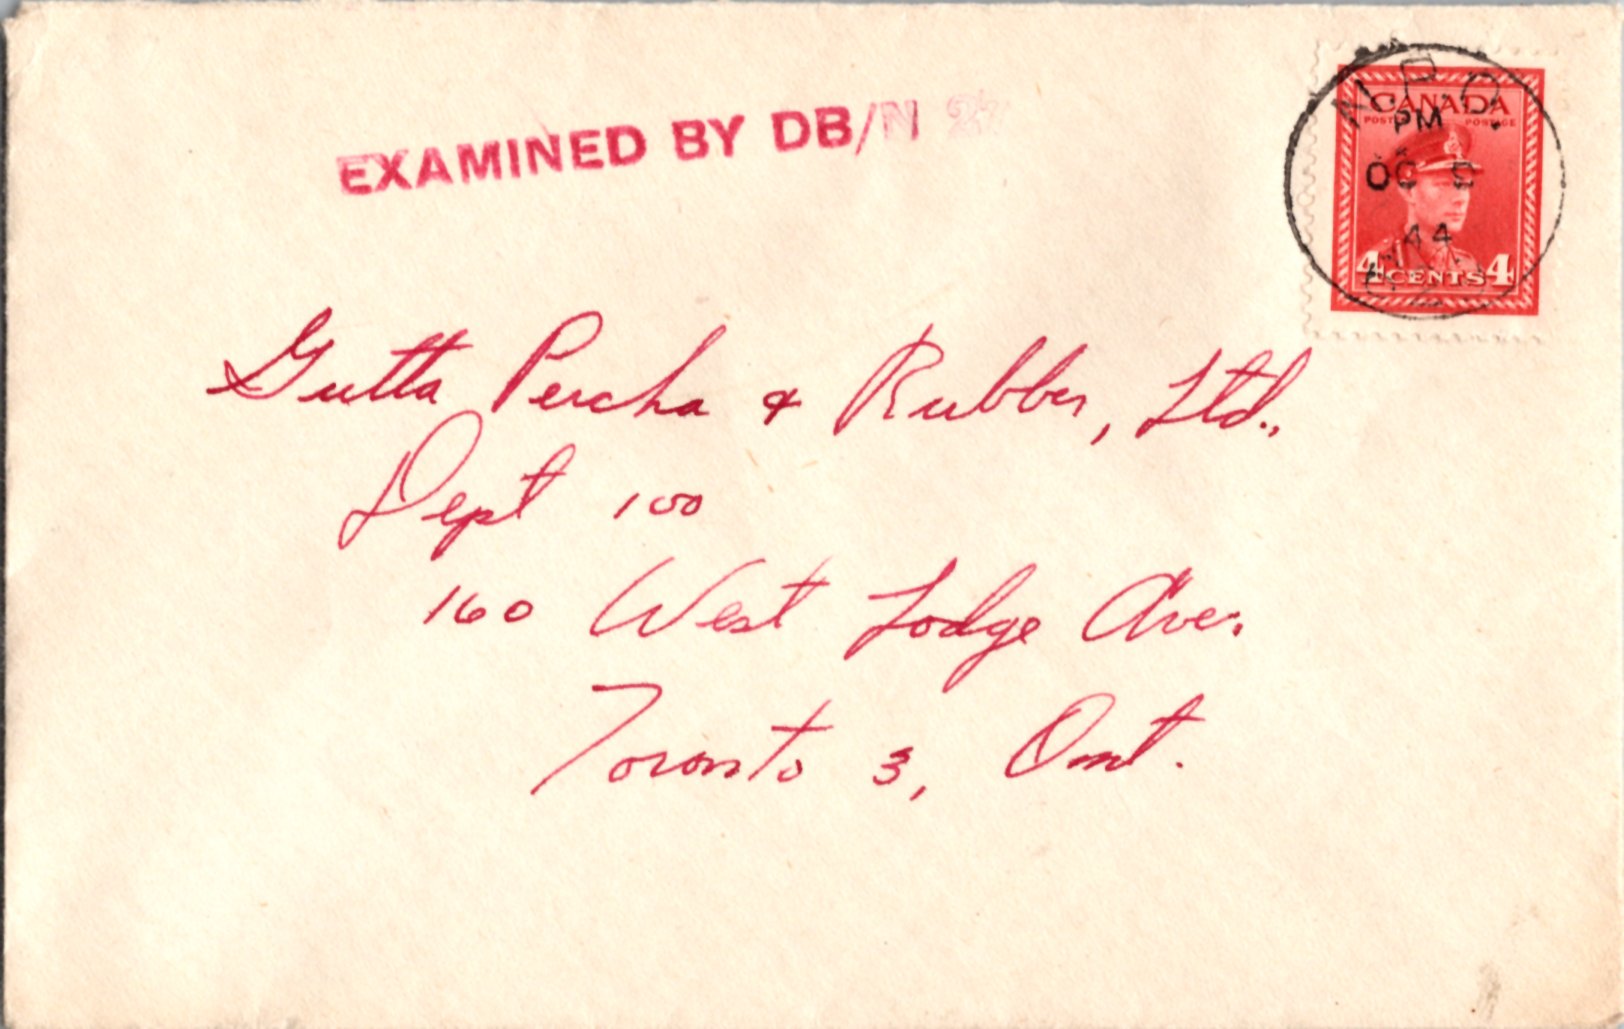 EXAMINED BY DB/N
N.P.O.
CANADA
POSTES POSTAGE
PM
OC 5
44
4 CENTS 4
Gutta Percha & Rubber, Ltd.,
Dept 100
160 West Lodge Ave.
Toronto 3, Ont.